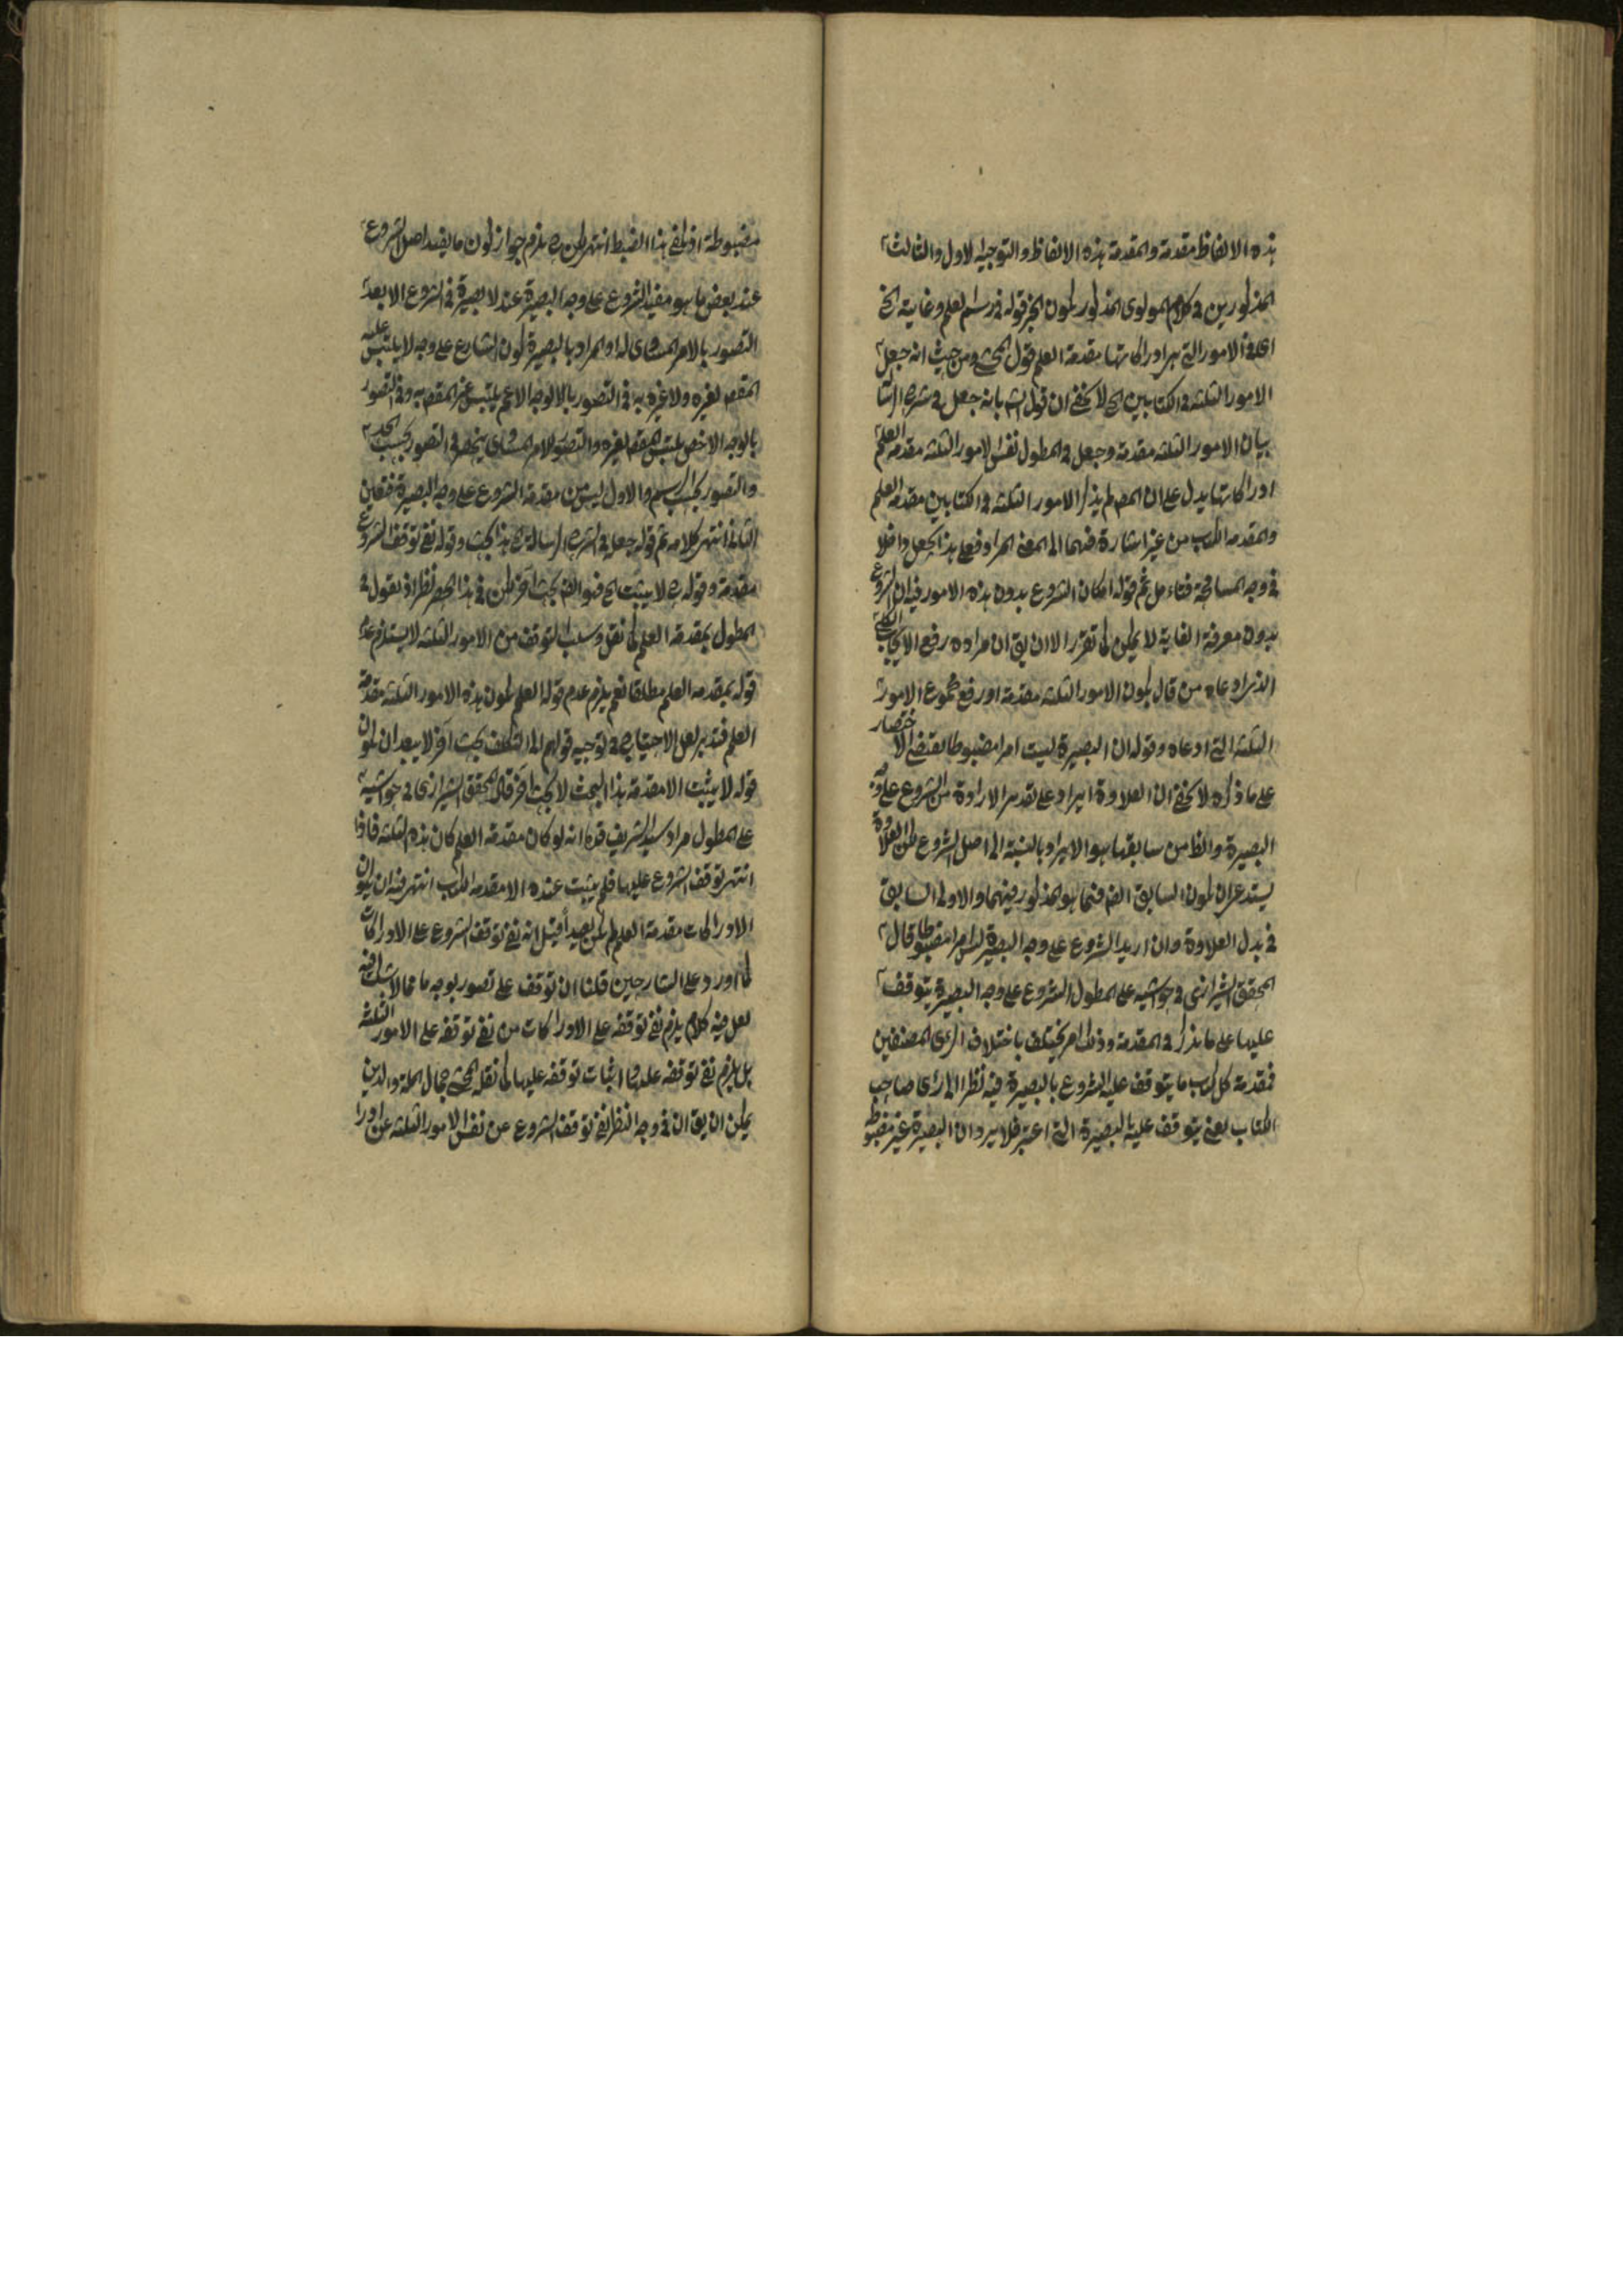 هذه الالفاظ مقدمة والمقدمة هذه الالفاظ والتوجيه الاول والثالث
المذكورين في كلام المولوى المذكور لكون الجز قوله في رسم العلم وغاية الخ
اى في الامور التي هي ادراكاتها مقدمة العلم قول المحشى ومن حيث انه جعل
الامور الثلثة في الكتابين الخ لا يخفى ان قول الشم بانه جعل في شرح الرسا
بيان الامور الثلثة مقدمة وجعل في المطول نفس الامور الثلثة مقدمة العلم
ادراكاتها يدل على ان المصم لم يذكر الامور الثلثة في الكتابين مقدمة العلم
والمقدمة الكتاب من غير اشارة فيهما الى المعنى المراد فعلى هذا الجعل داخلا
في وجه المسامحة فتامل ثم قوله امكان الشروع بدون هذه الامور فيه ان الشروع
بدون معرفة الغاية لا يمكن كما تقرر الا ان يق ان مراده رفع الايجاب الكلى
الذى ادعاه من قال بكون الامور الثلثة مقدمة او رفع مجموع الامور
الثلثة التي ادعاه وقوله ان البصيرة ليست امرا مضبوطا يقتضى الاختصار
على ما ذكره لا يخفى ان العلاوة ايراد على تقدير الارادة من الشروع على وجه
البصيرة والظ من سابقها هو الايراد بالنسبة الى اصل الشروع لكن العلاوة
يستدعى ان يكون السابق الضم فيما هو المذكور فيهما والاولى السابق
في بدل العلاوة وان اريد الشروع على وجه البصيرة ليس امرا مضبوطا قال
المحقق الشيرازى في حواشيه على المطول الشروع على وجه البصيرة يتوقف
عليها على ما يذكر في المقدمة وذلك امر يختلف باختلاف الراى المصنفين
فمقدمة كل كتاب ما يتوقف عليه الشروع بالبصيرة فيه نظرا الى راى صاحب
الكتاب يعنى يتوقف عليه بالبصيرة التي اعتبر فلا يرد ان البصيرة غير مضبوطة
مضبوطة اذ يكفى هذا الضبط انتهى لكن ح يلزم جواز كون ما يفيد اصل الشروع
عند بعض ما هو مفيد الشروع على وجه البصيرة عند لا بصيرة في الشروع الا بعد
التصور بالامر المساوى له او المراد بالبصيرة كون الشارع على وجه لا يلتبس عليه
المقصم لغيره ولا غيره به في التصور بالالوجه الاعم يلتبس غير المقصم به وفي التصور
بالوجه الاخص يلتبس المقصم لغيره والتصور بالامر المساوى ينحصر في التصور بحسب الحد
والتصور بحسب الرسم والاول ليس من مقدمة الشروع على وجه البصيرة فتعين
الثانى انتهى كلامه ثم قوله جعله في الشرح الرسالة ح هذا بحث وقوله نفى توقف الشروع
مقدمة وقوله ح لا يثبت الخ فهو الضم بحث اخر لكن في هذا الحصر نظر اذ نقول في
المطول بمقدمة العلم كما نقل وسلب التوقف من الامور الثلثة لا يستلزم عدم
قوله بمقدمة العلم مطلقا نعم يلزم عدم قوله العلم لكون هذه الامور الثلثة مقدمة
العلم فتدبر لعل الاحتياج في توجيه قولهم الى التكلف بحث اخر لا يبعد ان يكون
قوله لا يثبت الا مقدمة هذا البحث لا بحث اخر قال المحقق الشيرازى في حواشيه
على المطول مراد سيد الشريف قده انه لو كان مقدمة العلم كان هذه الثلثة فاذا
انتهى توقف الشروع عليها فلم يثبت عنده الا مقدمة الكتاب انتهى فيه ان يكون
الادراكات مقدمة العلم لم يكن بعيدا قيل انه نفى توقف الشروع على الادراكات
كما اورد على الشارحين قلنا ان توقف على تصور بوجه ما مما لا شك فيه
لعل فيه كلام يلزم نفى توقفه على الادراكات من نفى توقفه على الامور الثلثة
بل يلزم نفى توقفه عليها اثبات توقفه عليها كما نقله المحشى جمال الملة والدين
يمكن ان يق ان في وجه النظر نفى توقف الشروع عن نفس الامور الثلثة عن ادرا